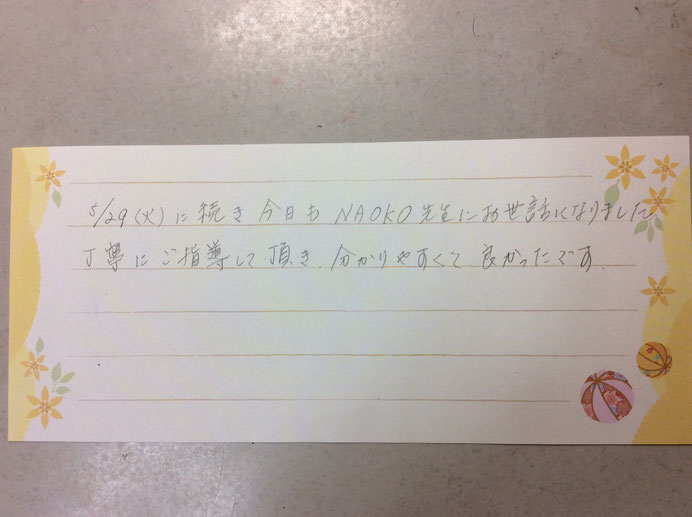 5/29(火)に続き今日もNAOKO先生にお世話になりました
丁寧にご指導して頂き、分かりやすくて良かったです.